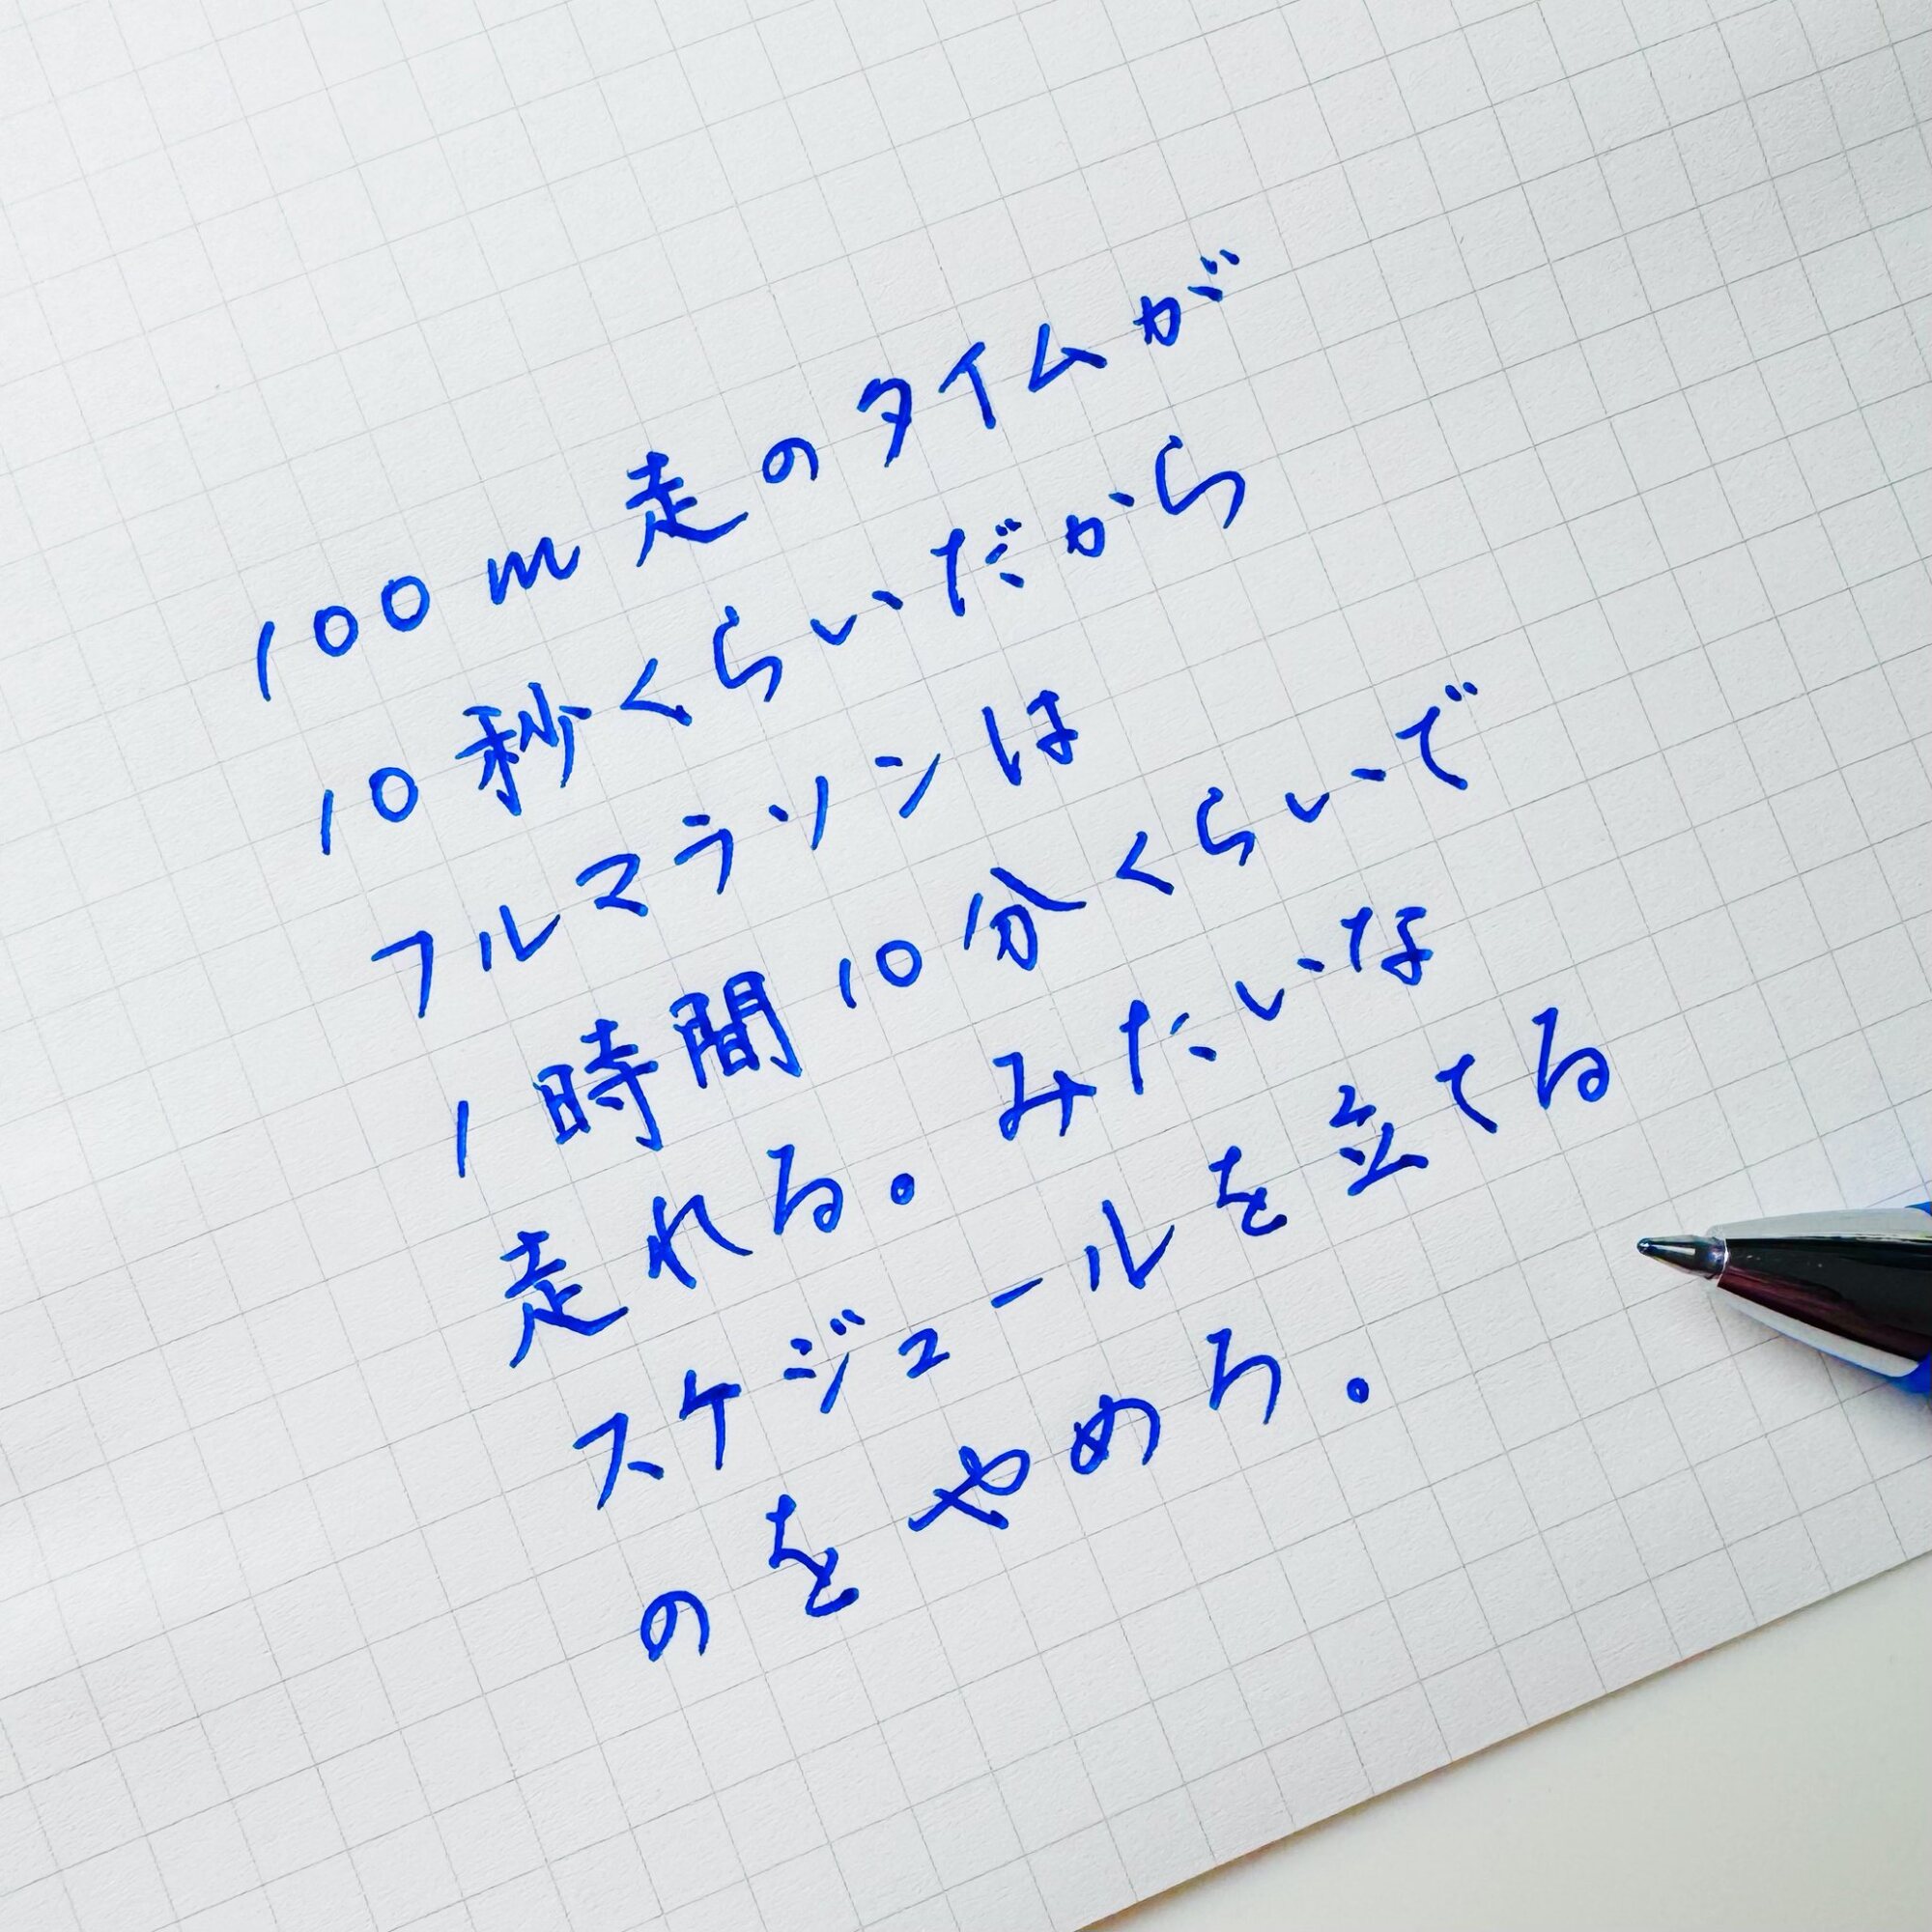 100m走のタイムが
10秒くらいだから
フルマラソンは
1時間10分くらいで
走れる。みたいな
スケジュールを立てる
のをやめろ。